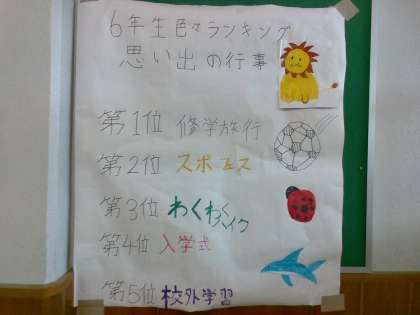 6年生色々ランキング
思い出の行事
第1位 修学旅行
第2位 スポフェス
第3位 わくわくハイク
第4位 入学式
第5位 校外学習